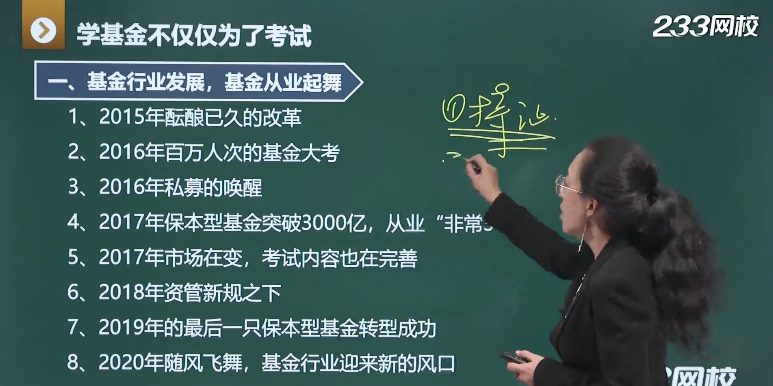 学基金不仅仅为了考试
233网校
一、基金行业发展，基金从业起舞
1、2015年酝酿已久的改革
①持证
2、2016年百万人次的基金大考
3、2016年私募的唤醒
4、2017年保本型基金突破3000亿，从业“非常
5、2017年市场在变，考试内容也在完善
6、2018年资管新规之下
7、2019年的最后一只保本型基金转型成功
8、2020年随风飞舞，基金行业迎来新的风口
网校